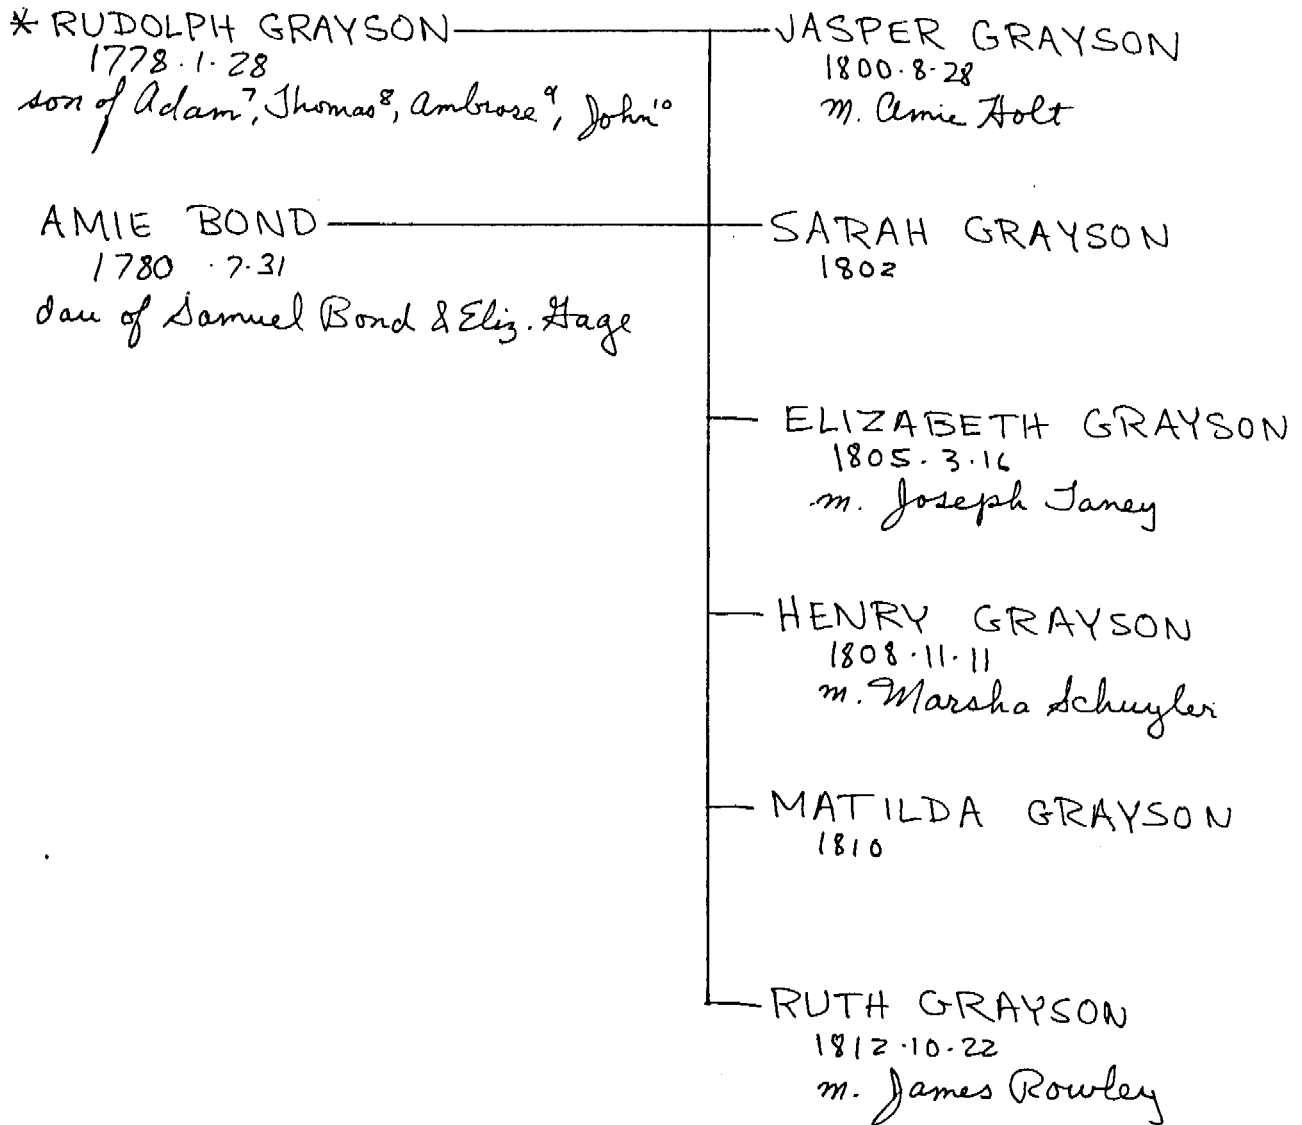 * RUDOLPH GRAYSON
1778.1.28
son of Adam⁷, Thomas⁸, Ambrose⁹, John¹⁰
AMIE BOND
1780 .7.31
dau of Samuel Bond & Eliz. Gage
JASPER GRAYSON
1800.8.28
m. Amie Holt
SARAH GRAYSON
1802
ELIZABETH GRAYSON
1805.3.16
m. Joseph Taney
HENRY GRAYSON
1808.11.11
m. Marsha Schuyler
MATILDA GRAYSON
1810
RUTH GRAYSON
1812.10.22
m. James Rowley